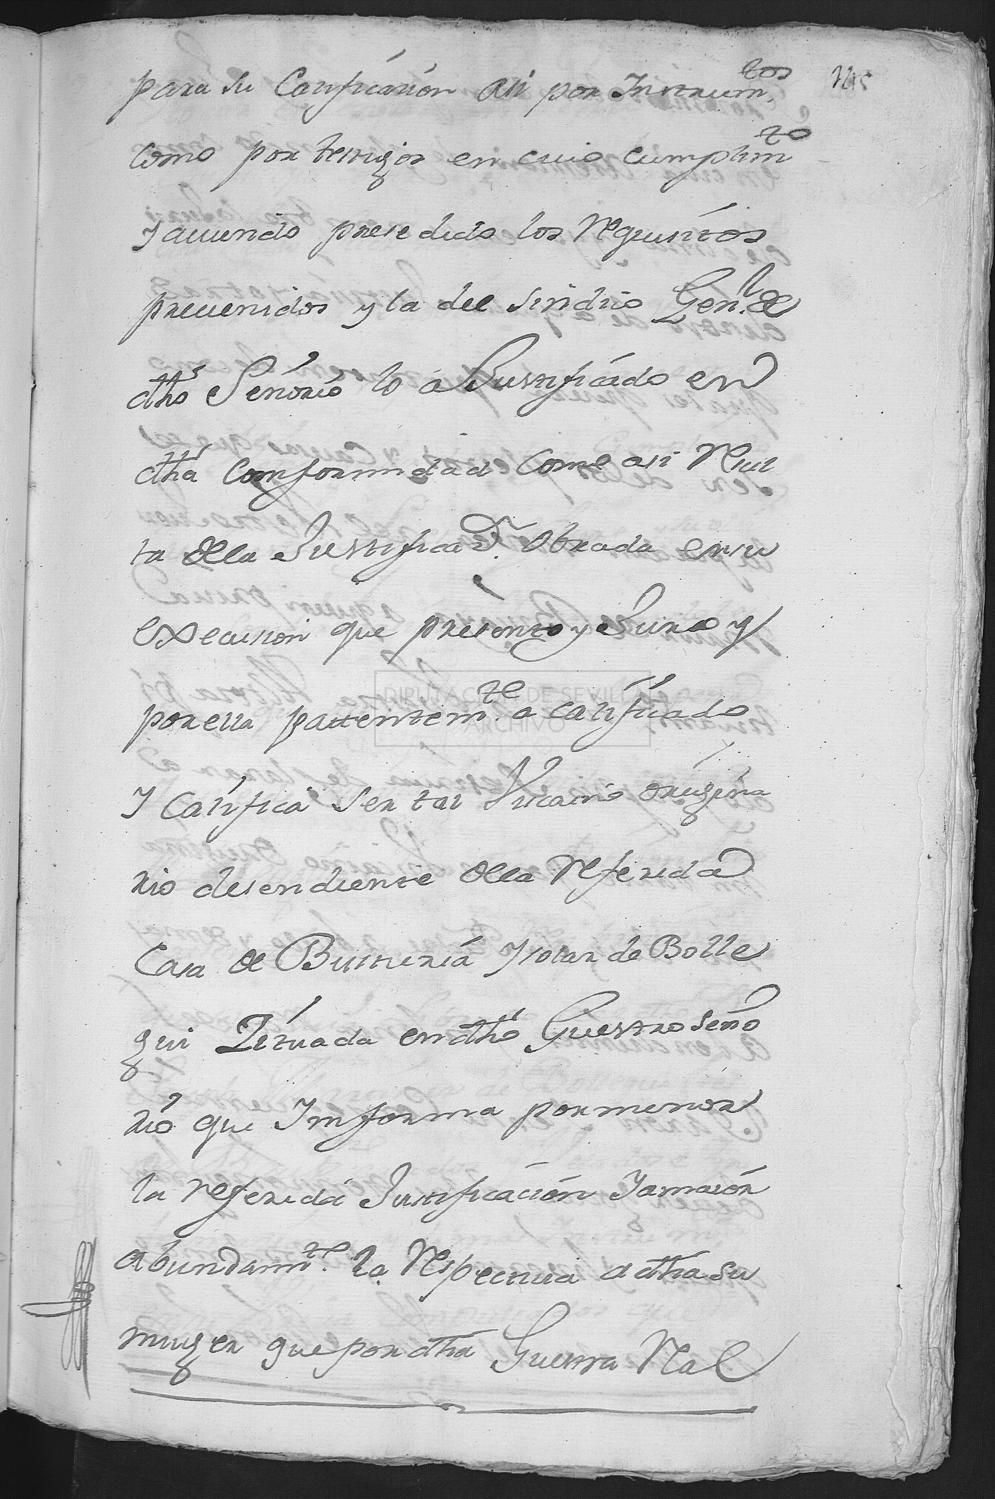 para su Calificazion asi por Instrum.tos 245
como por testigos en cuio cumplim.to
y aviendo presedido los Requisitos
prevenidos y la del sindico Gen.l de
dho Señorio lo a Justificado en
dha conformidad como asi Resul
ta de la Justificaz.n obrada en su
execusion que presento y Juro y
por ella patentem.te a calificado
y califica ser tal Viscaino origina
rio desendiente de la Referida
Casa de Bustieria y solar de Bolle
gui Zituada en dho Vuestro Seño
rio que Imforma por menor
la referida Justificacion y a maior
abundam.te la Respectiva a dha su
muger que por dha Vuestra Real
DIPUTACIÓN DE SEVILLA
ARCHIVO